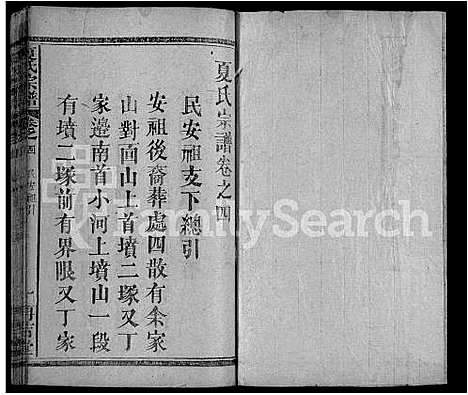 夏氏宗譜卷之四
民安祖支下總引
安祖後裔葬處四散有余家
山對面山上首墳二塚又丁
家邊南首小河上墳山一段
有墳二塚前有界眼又丁家
夏氏宗譜
FamilySearch